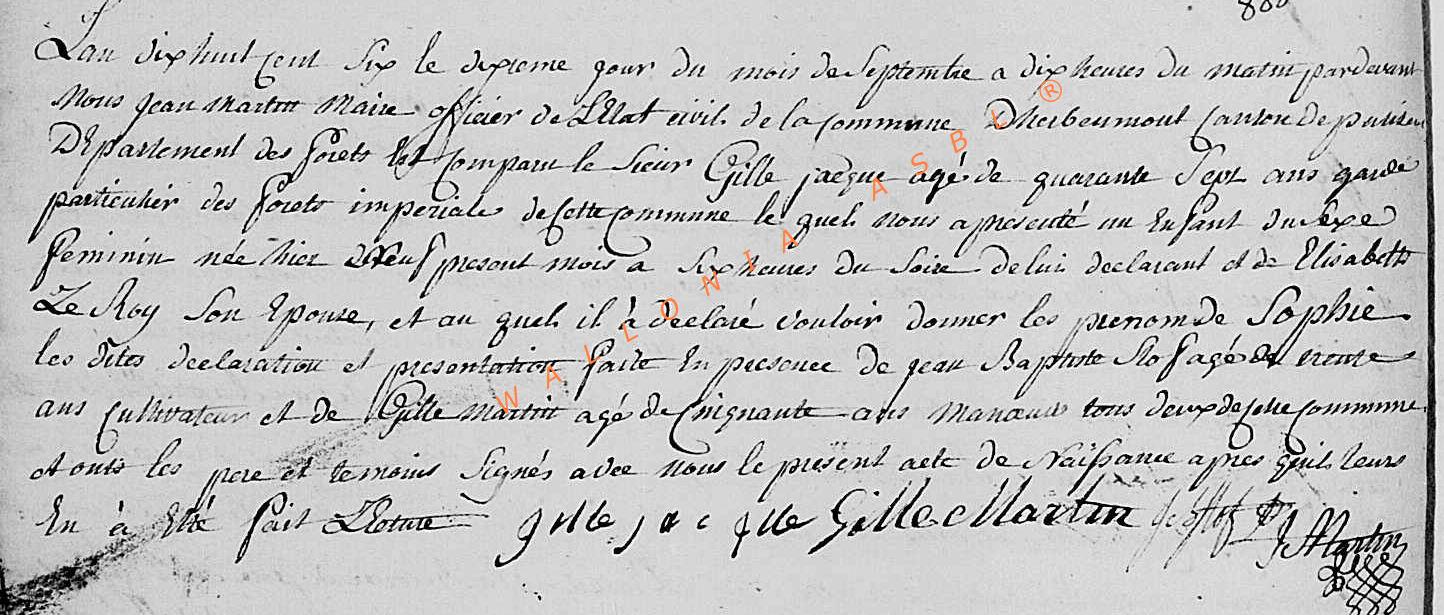 800
L'an dixhuit cent six le dixieme jour du mois de Septembre a dix heures du matin pardevant
Nous jean martin Maire officier de L'Etat civil de la commune D'herbeumont canton de
Departement des forets Est comparu le sieur Gille jacque agé de quarante sept ans garde
particulier des forets imperiales de cette commune le quel nous a presenté un Enfant du sexe
feminin née hier neuf present mois a six heures du soire de lui declarant et de Elisabeth
Le Roy son Epouse, et au quel il à declaré vouloir donner les prenom de Sophie
les dites declaration et presentation faite En presence de jean Baptiste agé de trente
ans cultivateur et de Gille martin agé de Cinquante ans manoeuvre tous deux de cette commune
et onts les pere et temoins signés avec nous le present acte de Naissance apres quil leurs
En à Eté fait Lecture gille jacque Gille Martin J Martin
WALLONIA ASBL ®